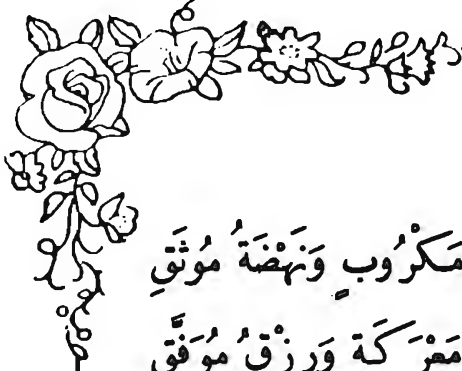 مَكْرُوبٍ وَنَهْضَةُ مُوثَقِ
مَعْرَكَة وَرِزْقُ مُوَفَّقِ